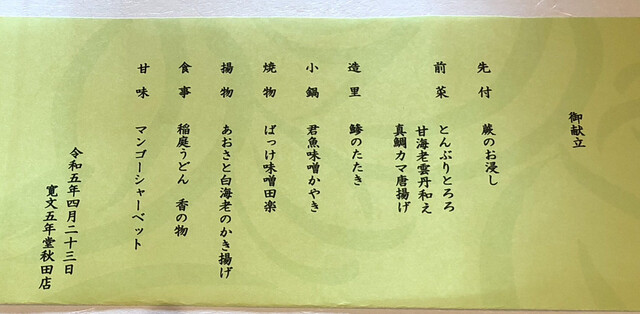 御献立
先付　蕨のお浸し
前菜　とんぶりとろろ
甘海老雲丹和え
真鯛カマ唐揚げ
造里　鯵のたたき
小鍋　君魚味噌かやき
焼物　ばっけ味噌田楽
揚物　あおさと白海老のかき揚げ
食事　稲庭うどん　香の物
甘味　マンゴーシャーベット
令和五年四月二十三日
寛文五年堂秋田店